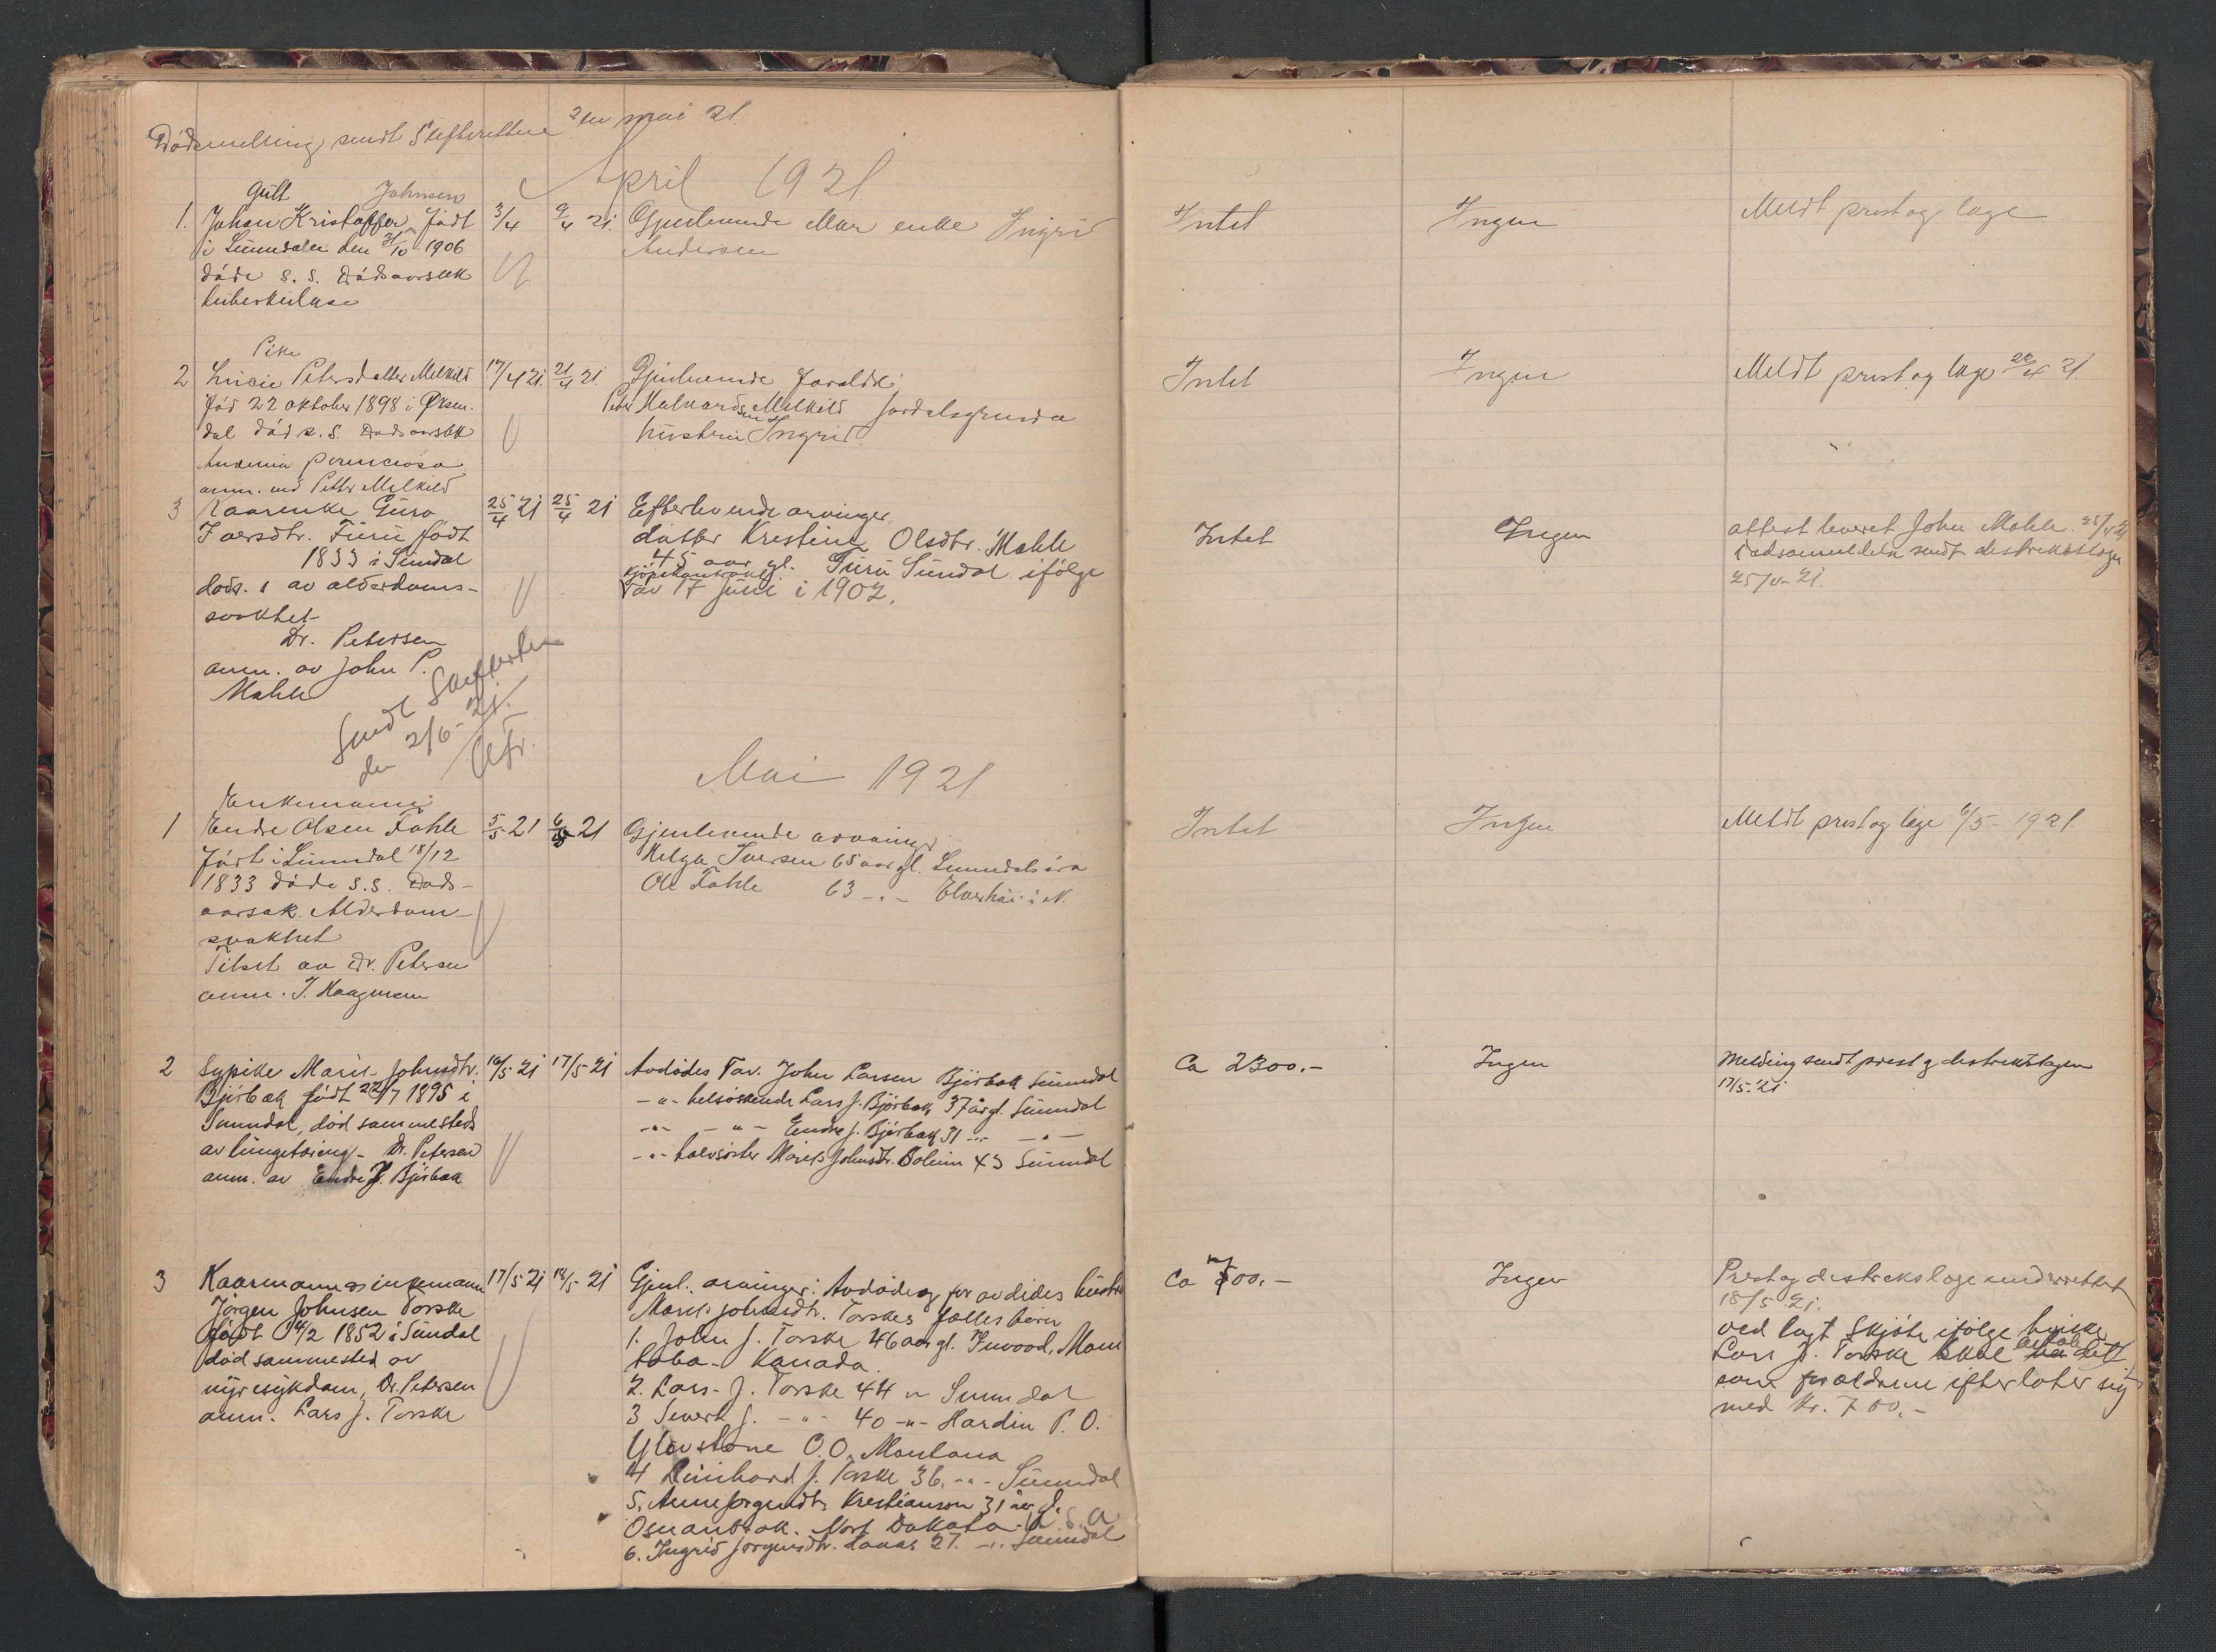 Dødsmelding sendt Skifteretten 2en mai 21
April 1921.
Gutt Johnsen
1. Johan Kristoffer født 3/4 9/4 21. Gjenlevende Mor enke Ingrid Intet Ingen Meldt prest og læge
i Sunndalen den 31/10 1906 Andersen
døde s. s. Dødsaarsak
tuberkulose
Pike
2 Lucie Petersdatter Melkild 17/4 21. 21/4 21. Gjenlevende foraldre Intet Ingen Meldt prest og læge 20/4 21.
Fød 22 oktober 1898 i Øksen- Peter Halvardsen Melkild Jordalsgrenda
dal død s. s. Dødsaarsak hustru Ingrid
Anæmia perniciosa
anm. ved Petter Melkild
3 Kaarenke Guro 25/4 21 25/4 21 Efterlevende arvinger
Iversdtr. Furu født datter Krestine Olsdtr. Mahle Intet Ingen attest leveret John Mahle 25/4 21
1833 i Sundal 45 aar gl. Furu Sundal ifølge dødsanmeldeln sendt destriktslægen
døds. s av alderdoms- kjøpekontrakt av 17 juni i 1902. 25/4-21.
svakhet
Dr. Petersen
anm. av John P.
Mahle
Sendt Skifteretten
den 2/6-21.
Mai 1921.
Enkemann
1 Endre Olsen Fahle 5/5 21 6/5 21 Gjenlevende arvinger Intet Ingen Meldt prest og læge 6/5-1921.
Født i Sunndal 18/12 Helga Iversen 65 aar gl. Sunndalsøra
1833 døde s.s. Døds- Ole Fahle 63 -"- Elverhøi i N.
aarsak. Alderdom-
svakhet
Tilset av Dr. Petersen
anm. I. Haagensen
2 Sypike Marit Johnsdtr. 16/5 21 17/5-21 Avdødes Far. John Larsen Bjørbæk Sunndal Ca 2300.- Ingen Melding sendt prest og destriktslægen
Bjørbæk født 22/7 1895 i -"- helsøskende Lars J. Bjørbæk 37 år gl. Sunndal 17/5-21
Sunndal, død sammesteds -"- -"- Endre J. Bjørbæk 31 -"- -"-
av lungetæring- Dr. Petersen -"- halvsøster Marit Johnsdtr. Bolum 43 Sunndal
anm. av Endre J. Bjørbæk
3 Kaarmann og enkemann 17/5 21 18/5 21 Gjenl. arvinger: Avdøde og før avdødes hustru Ca 700.- Ingen Prest og destrikslæge underrettet
Jørgen Johnsen Torske Marit Johnsdtr. Torskes fælles børn 18/5 21.
født 14/2 1852 i Sundal 1. John J. Torske 46 aar gl. Inwood, Mani- ved lagt skjøte ifølge hvilke
død sammested av toba- Kanada. Lars J. Torske skal betale det
nyresykdom, Dr. Petersen 2. Lars. J. Torske 44 " Sunndal som foreldrene efterlater sig
anm. Lars J. Torske 3 Sivert J. -"- 40 -"- Hardin P. O. med Kr. 700.-
Ylovstone C.O. Montana
4 Reinhard J. Torske 36. -"- Sunndal
5. Anne Jørgendtr. Krestianson 31 år gl.
Osnanbrok. Nort Dakota. U. S. A.
6. Ingrid Jørgensdtr. 27. -"- Sunndal